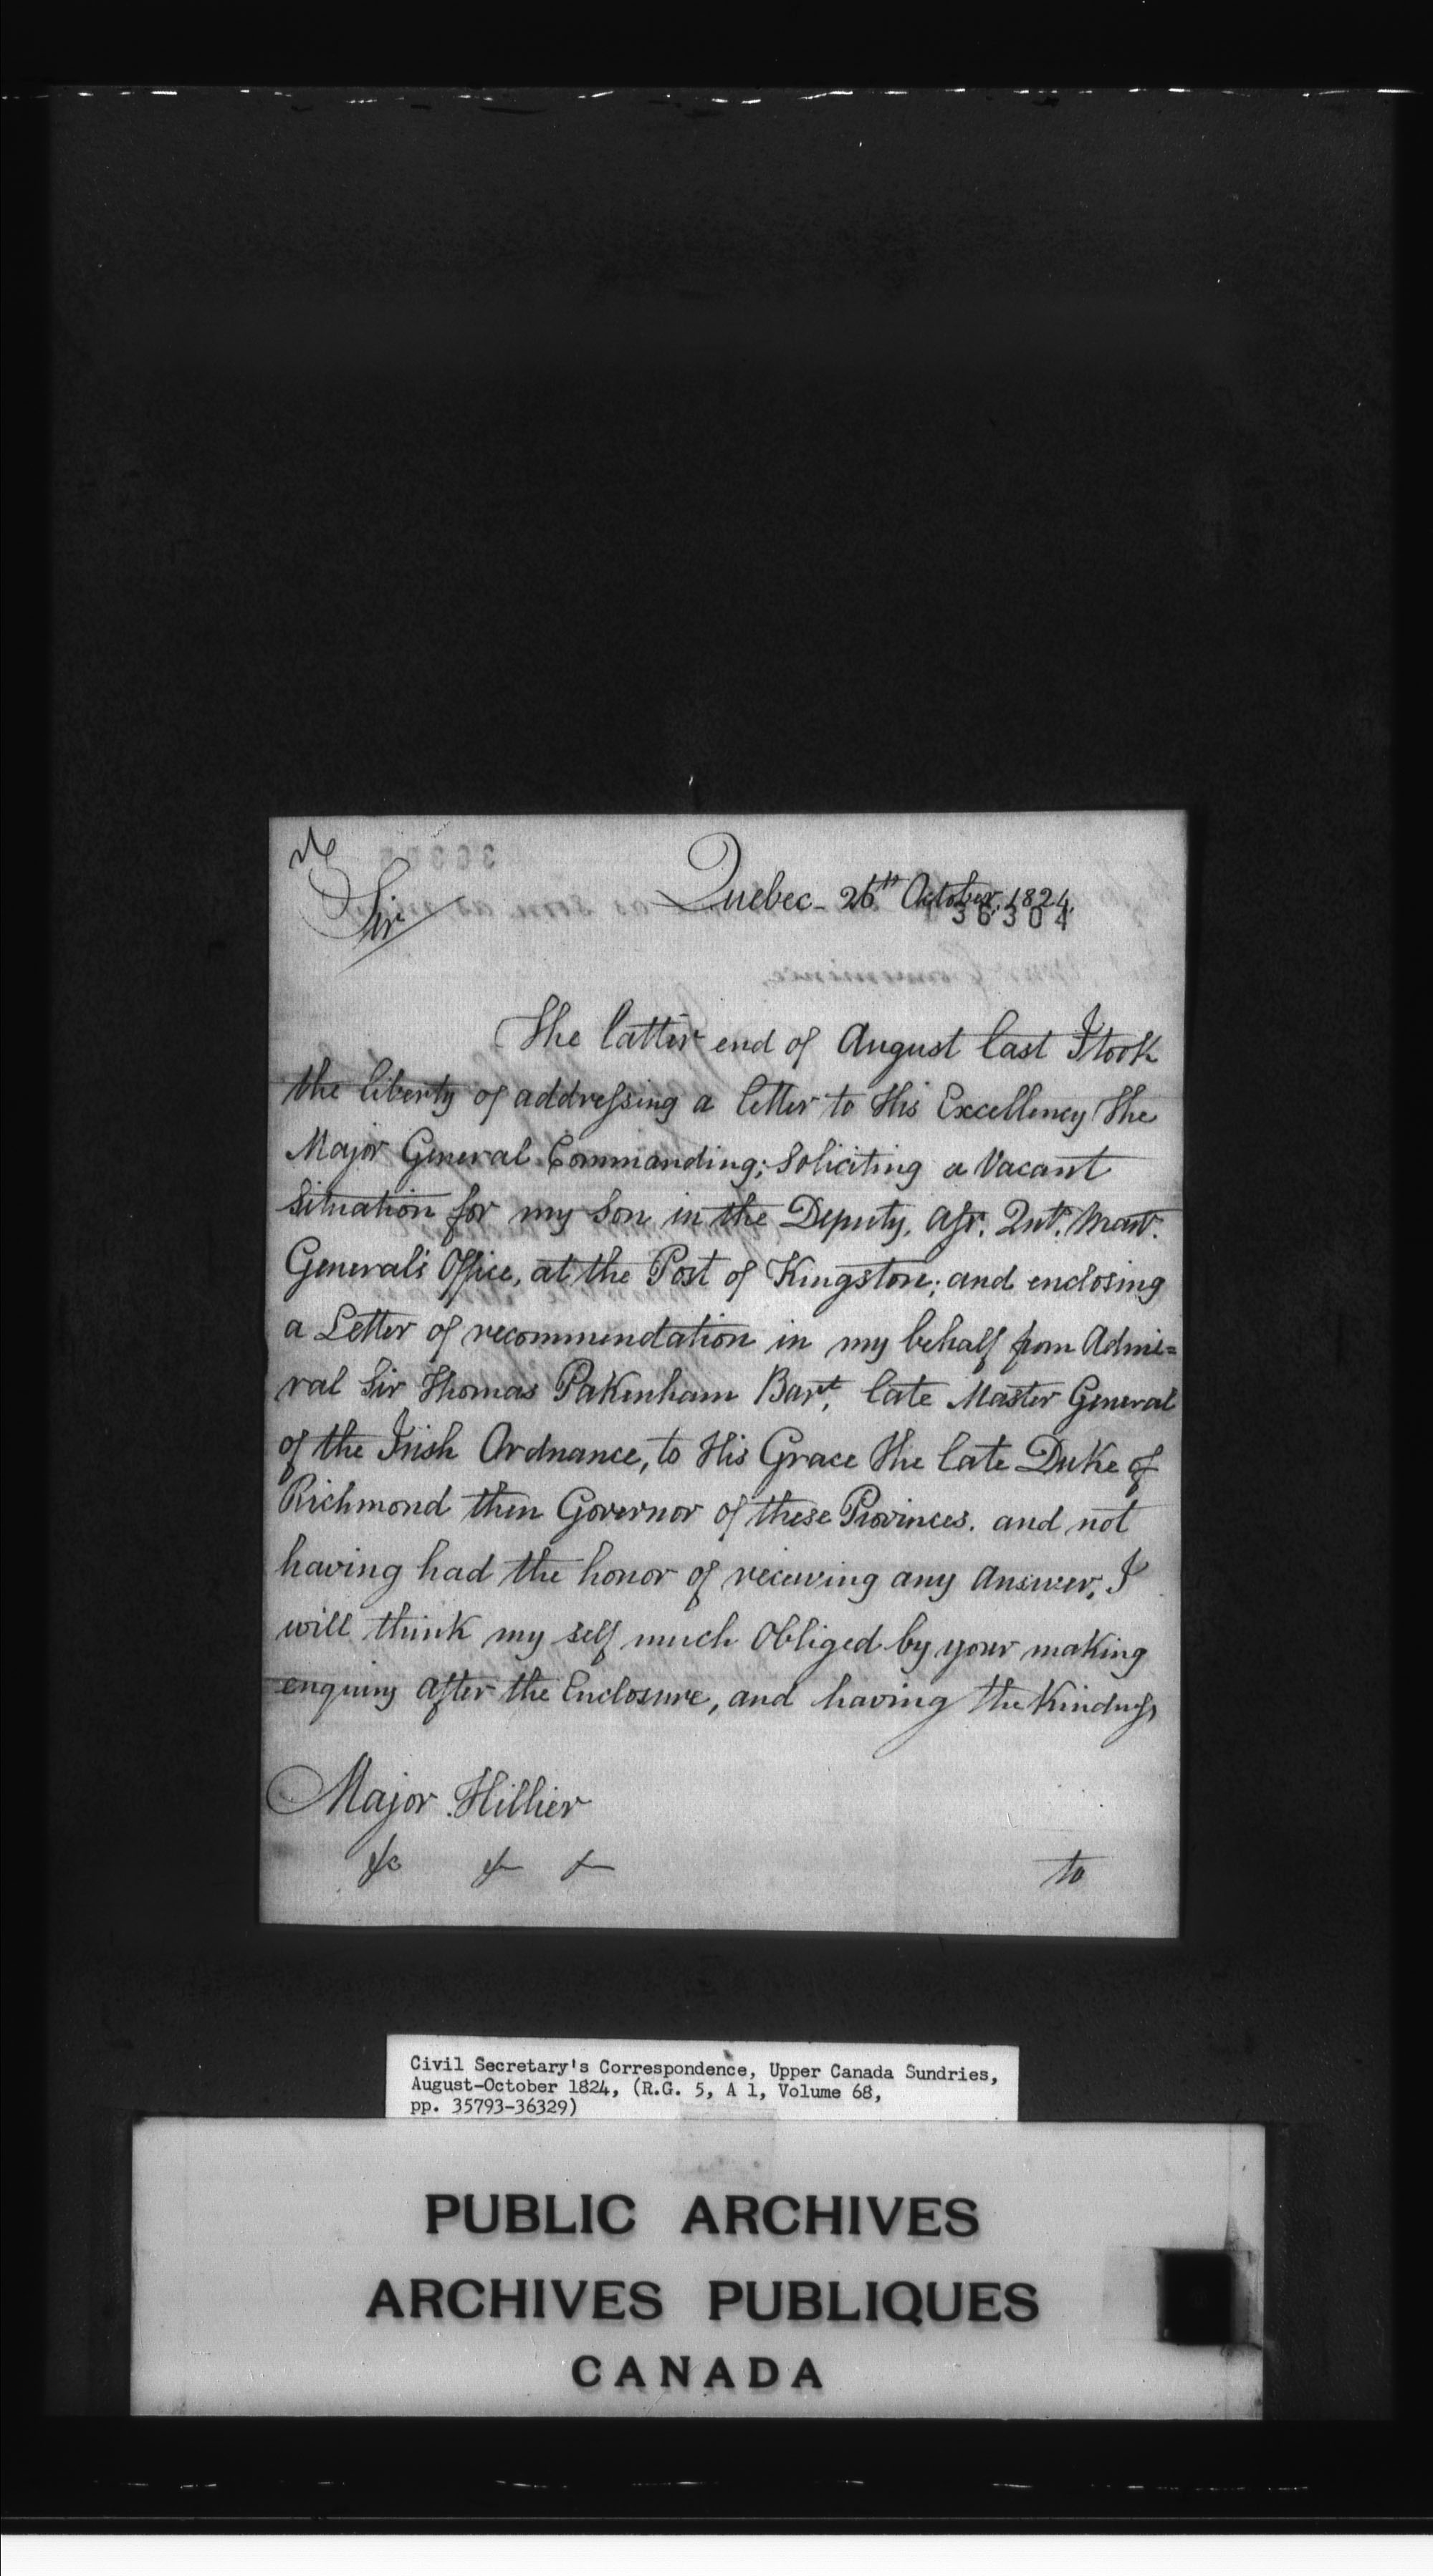 Quebec - 26th October, 1824.
36304
Sir
The latter end of August last I took
the liberty of addressing a letter to His Excellency The
Major General Commanding; Soliciting a Vacant
Situation for my Son in the Deputy. Asr. Qutr. Mastr.
General's Office, at the Post of Kingston; and enclosing
a Letter of recommendation in my behalf from Admi=
ral Sir Thomas Pakenham Bart, late Master General
of the Irish Ordnance, to His Grace The late Duke of
Richmond then Governor of these Provinces. and not
having had the honor of receiving any Answer, I
will think my self much Obliged by your making
enquiry after the Enclosure, and having the Kindness
Major Hillier
&c &c &c
to
Civil Secretary's Correspondence, Upper Canada Sundries,
August-October 1824, (R.G. 5, A 1, Volume 68,
pp. 35793-36329)
PUBLIC ARCHIVES
ARCHIVES PUBLIQUES
CANADA